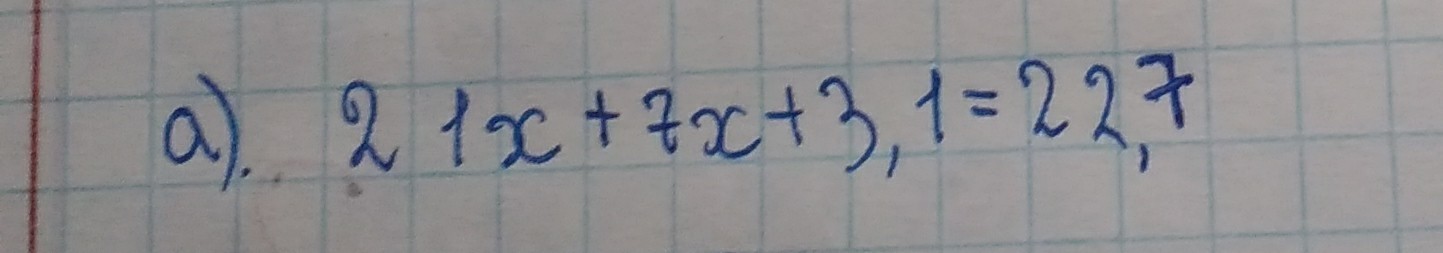 а). 2 1x + 7x + 3,1 = 22,7